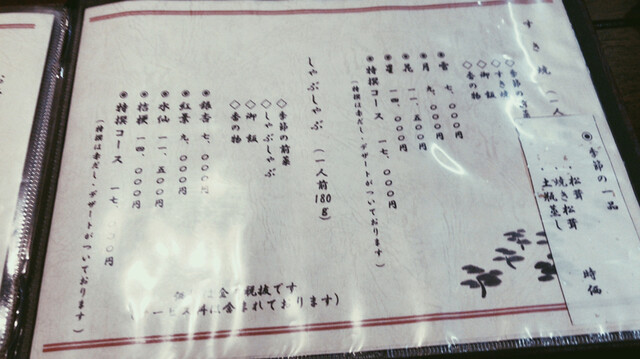 ◉季節の一品
・松茸
・焼き松茸
・土瓶蒸し
時価
すき焼（一人
◇季節の前菜
◇すき焼
◇御飯
◇香の物
◉雪 七、〇〇〇円
◉月 九、〇〇〇円
◉花 一一、五〇〇円
◉星 一四、〇〇〇円
◉特撰コース 一七、〇〇〇円
（特撰は赤だし・デザートがついております）
しゃぶしゃぶ（一人前180g）
◇季節の前菜
◇しゃぶしゃぶ
◇御飯
◇香の物
◉銀杏 七、〇〇〇円
◉紅葉 九、〇〇〇円
◉水仙 一一、五〇〇円
◉桔梗 一四、〇〇〇円
◉特撰コース 一七、〇〇〇円
（特撰は赤だし・デザートがついております）
税抜です
に含まれております）